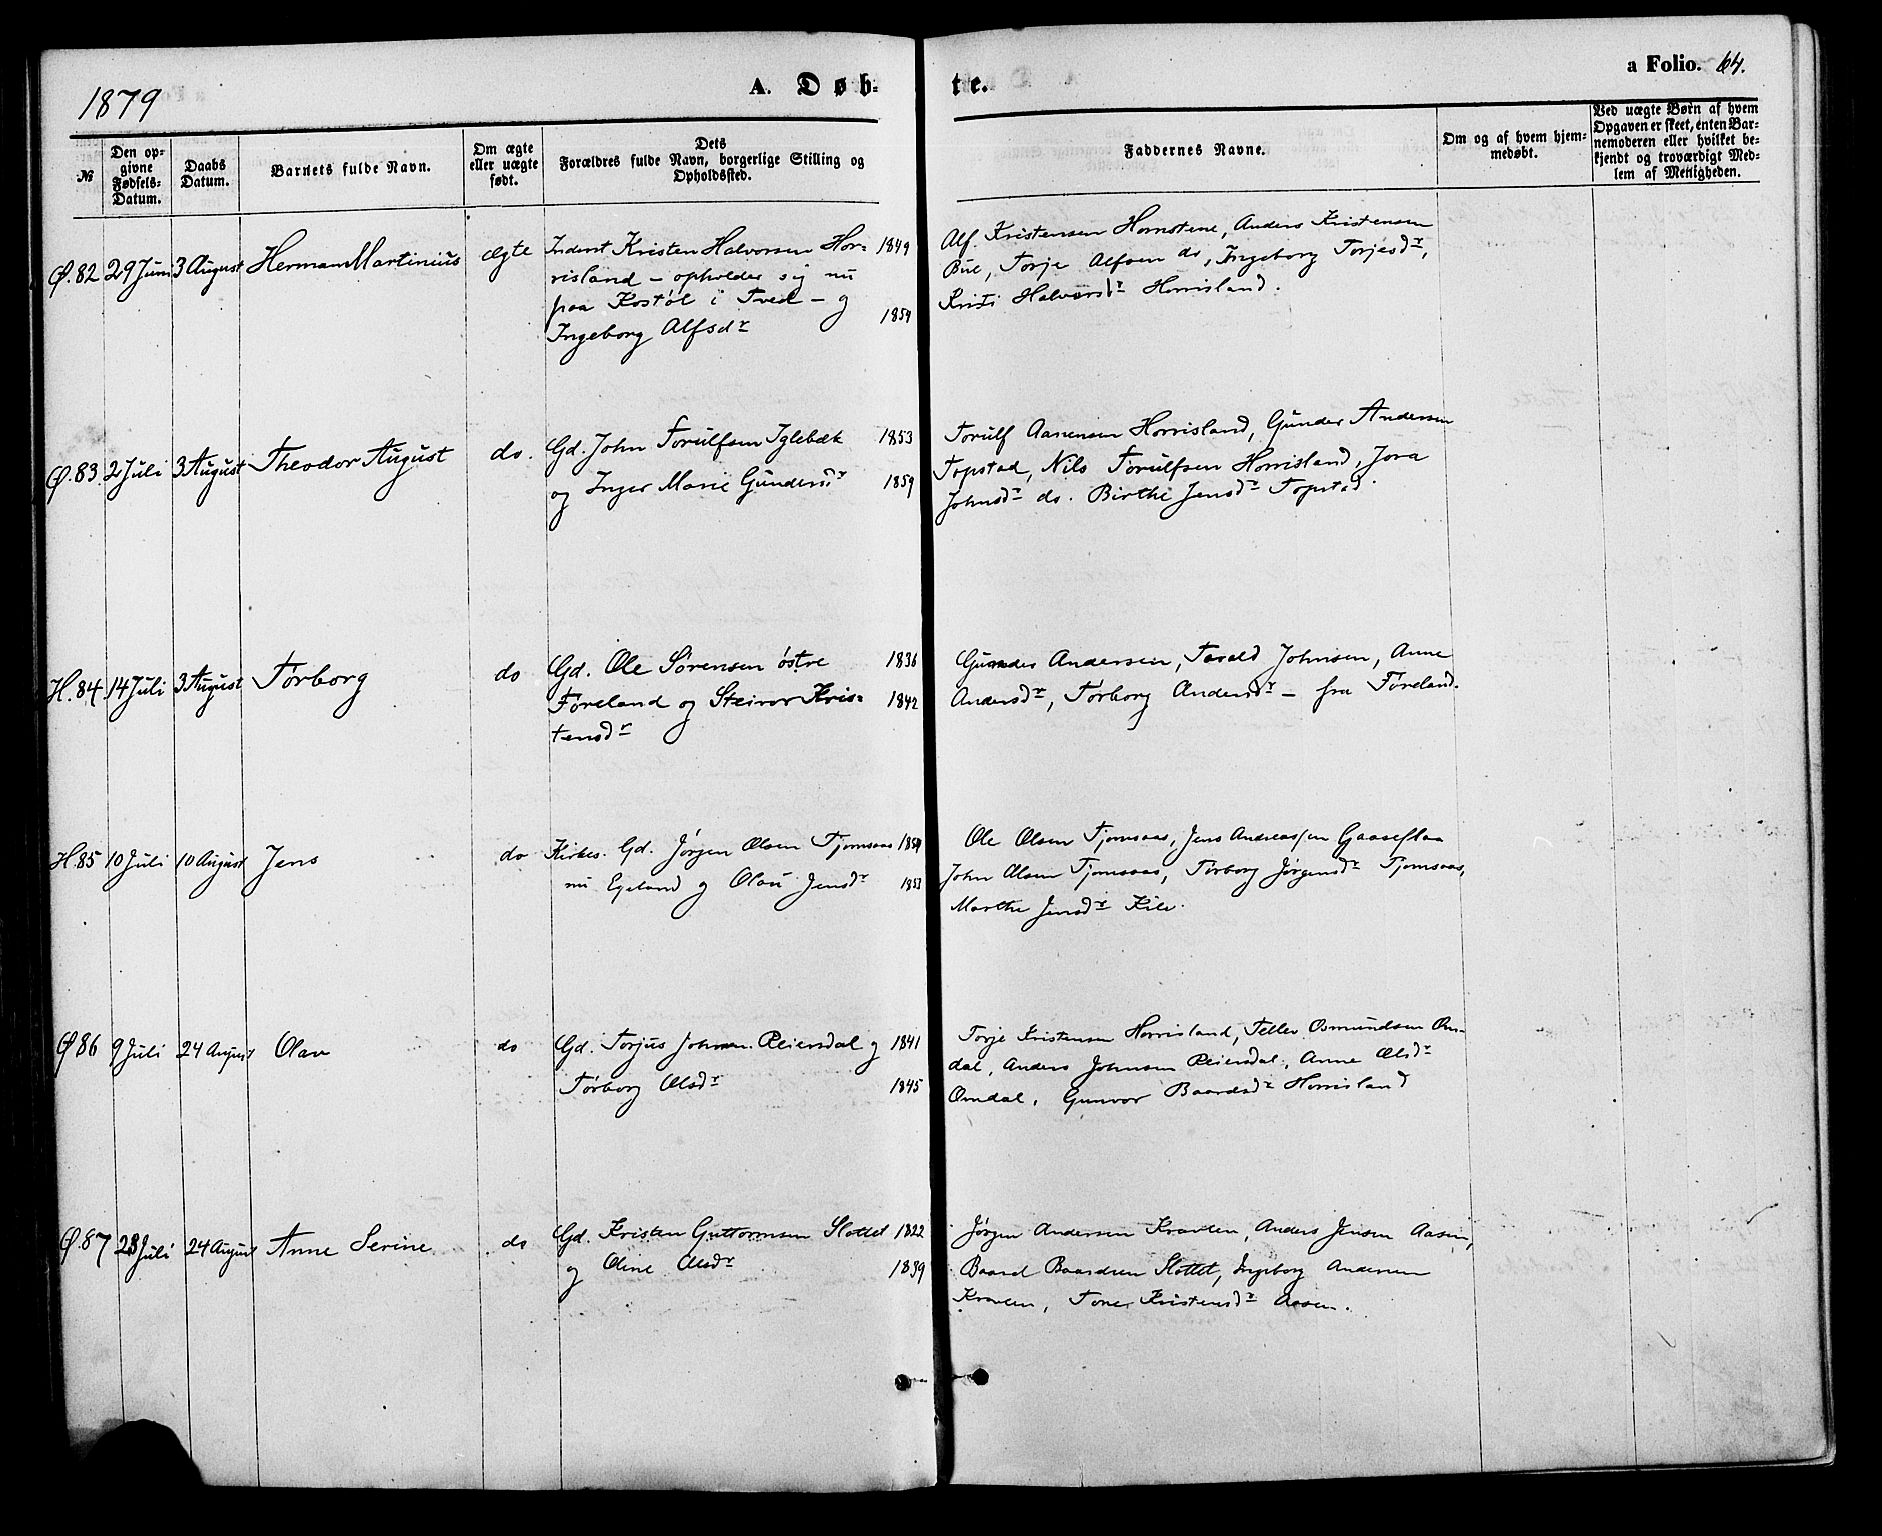 1879
A. Døb-
te.
a Folio. 64.
№
Den op-
givne
Fødsels-
Datum.
Daabs
Datum.
Barnets fulde Navn.
Om ægte
eller uægte
født.
Dets
Forældres fulde Navn, borgerlige Stilling og
Opholdssted.
Faddernes Navne.
Om og af hvem hjem-
medøbt.
Ved uægte Børn af hvem
Opgaven er skeet, enten Bar-
nemoderen eller hvilket be-
kjendt og troværdigt Med-
lem af Menigheden.
Ø. 82 29 Juni 3 August Herman Martinius ægte
Inderst Kristen Halvorsen Hor- 1849
risland – opholder sig nu
paa Kostøl i Tved – og
Ingeborg Alfsdr 1854
Alf. Kristensen Hornstene, Anders Kristensen
Bue, Torje Alfsen do, Ingeborg Torjesdr,
Kristi Halvorsdr Horrisland.
Ø. 83 2 Juli 3 August Theodor August do.
Gd. John Torulfsen Iglebæk 1853
og Inger Marie Gundersdr 1859
Torulf Aanensen Horrisland, Gunder Andersen
Topstad, Nils Torulfsen Horrisland, Jora
Johnsdr do. Birthe Jensdr Topstad.
H. 84 14 Juli 3 August Torborg do
Gd. Ole Sørensen østre 1836
Føreland og Steinvor Kris- 1842
tensdr
Gunder Andersen, Tarald Johnsen, Anne
Andersdr, Torborg Andersdr – fra Føreland.
H. 85 10 Juli 10 August Jens do
Kirkes. Gd. Jørgen Olsen Tjomsaas 1854
nu Egeland og Olau Jensdr 1853
Ole Olsen Tjomsaas, Jens Andreassen Gaaseflaa
John Olsen Tjomsaas, Torborg Jørgensdr Tjomsaas,
Marthe Jensdr Kile.
Ø 86 9 Juli 24 August Olav do
Gd. Torjus Johnsen Reiersdal og 1841
Torborg Olsdr 1845
Torje Kristensen Horrisland, Tellev Osmundsen Om-
dal, Anders Johnsen Reiersdal, Anne Olsdr
Omdal, Gunvor Baardsdr Horrisland
Ø. 87 28 Juli 24 August Anne Serine do
Gd. Kristen Guttormsen Slottet 1822
og Oline Olsdr 1839
Jørgen Andersen Kraveen, Anders Jensen Aasen,
Baard Baardsen Slottet, Ingeborg Andersen
Kraveen, Tone Kristensdr Aasen.